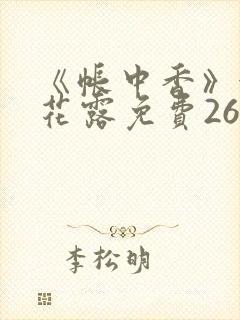 《帐中香》
花露免費26
李松明